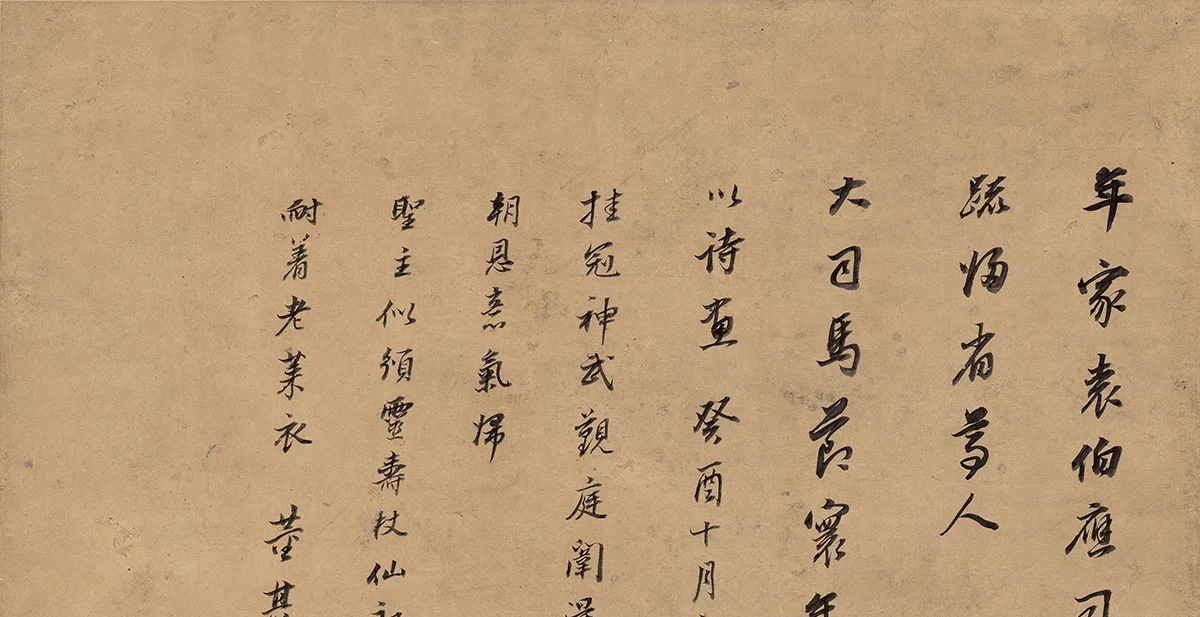 年家袁伯應司
疏歸省尊人
大司馬節寰年
以詩畫 癸酉十月
挂冠神武覲庭闈
朝恩意氣歸
聖主似須靈壽杖仙
耐着老萊衣 董其